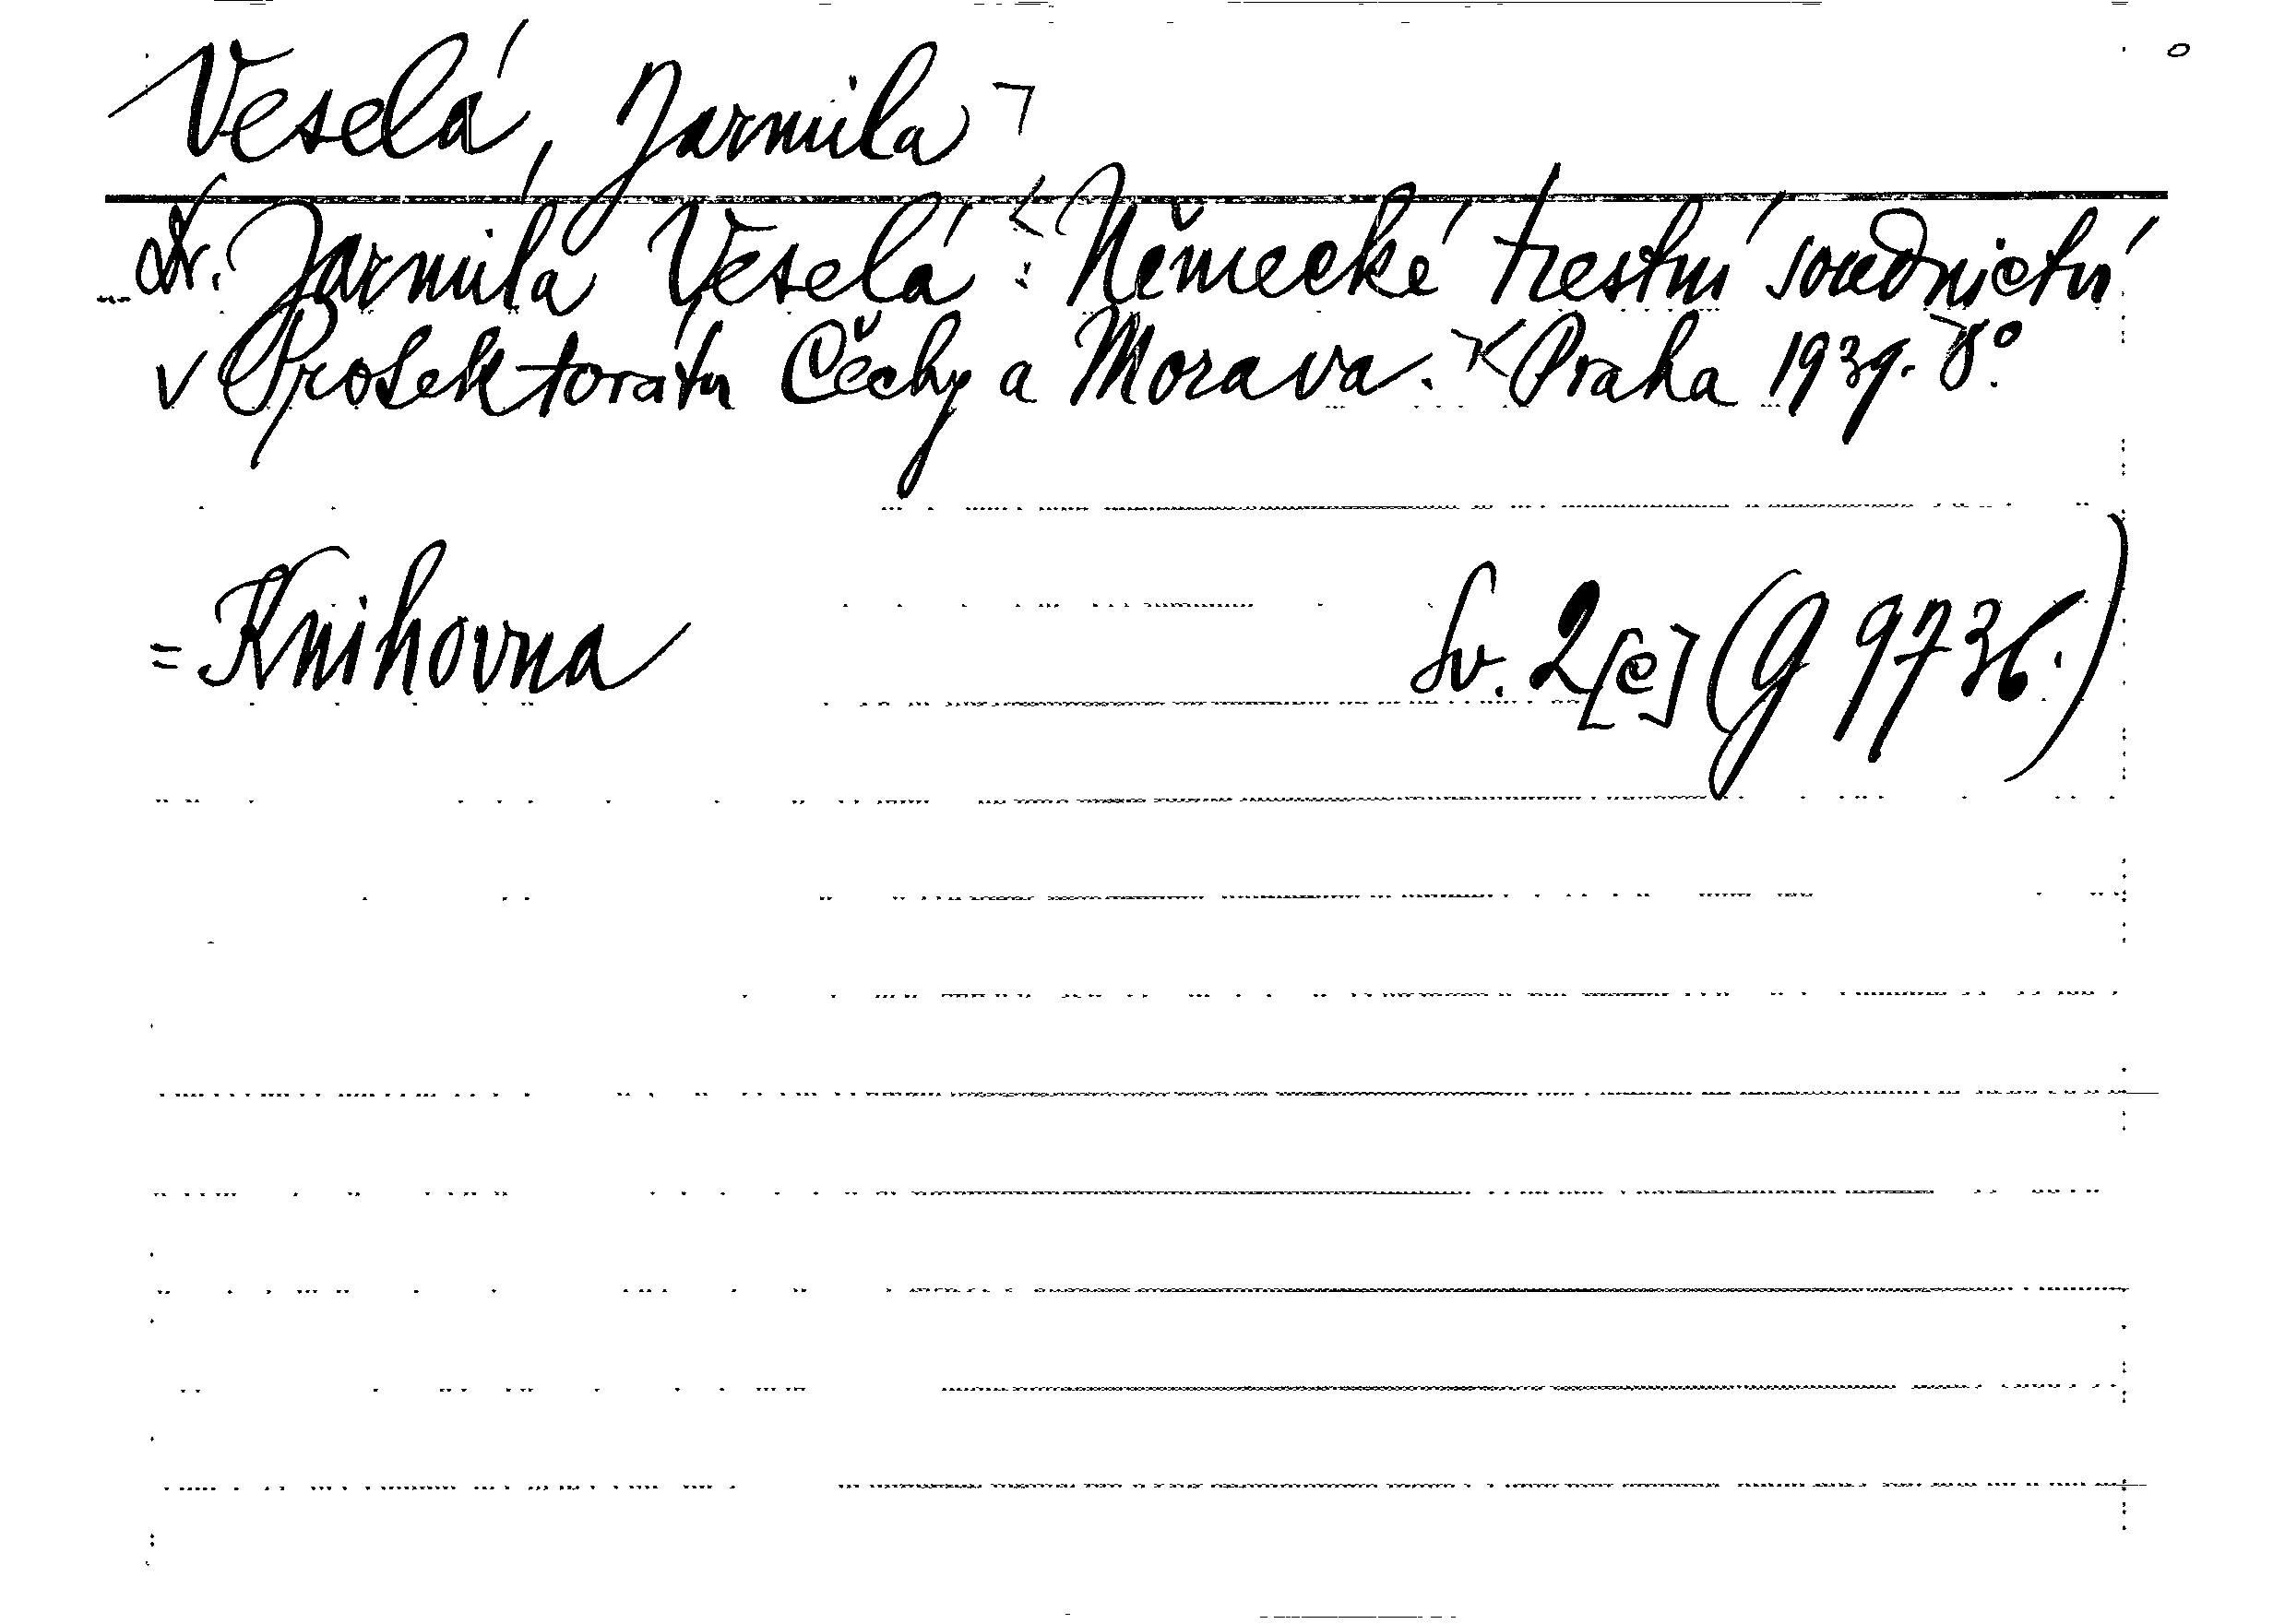 Veselá, Jarmila
Dr. Jarmila Veselá: Německé trestní soudnictví
v Protektorátu Čechy a Morava. Praha 1939. 8°.
= Knihovna Sv. 2[c] (G 9736.)